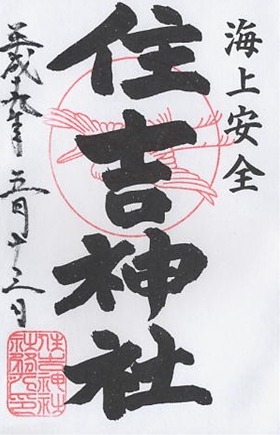 海上安全
住吉神社
平成九年五月十三日
住吉神社
社務所印